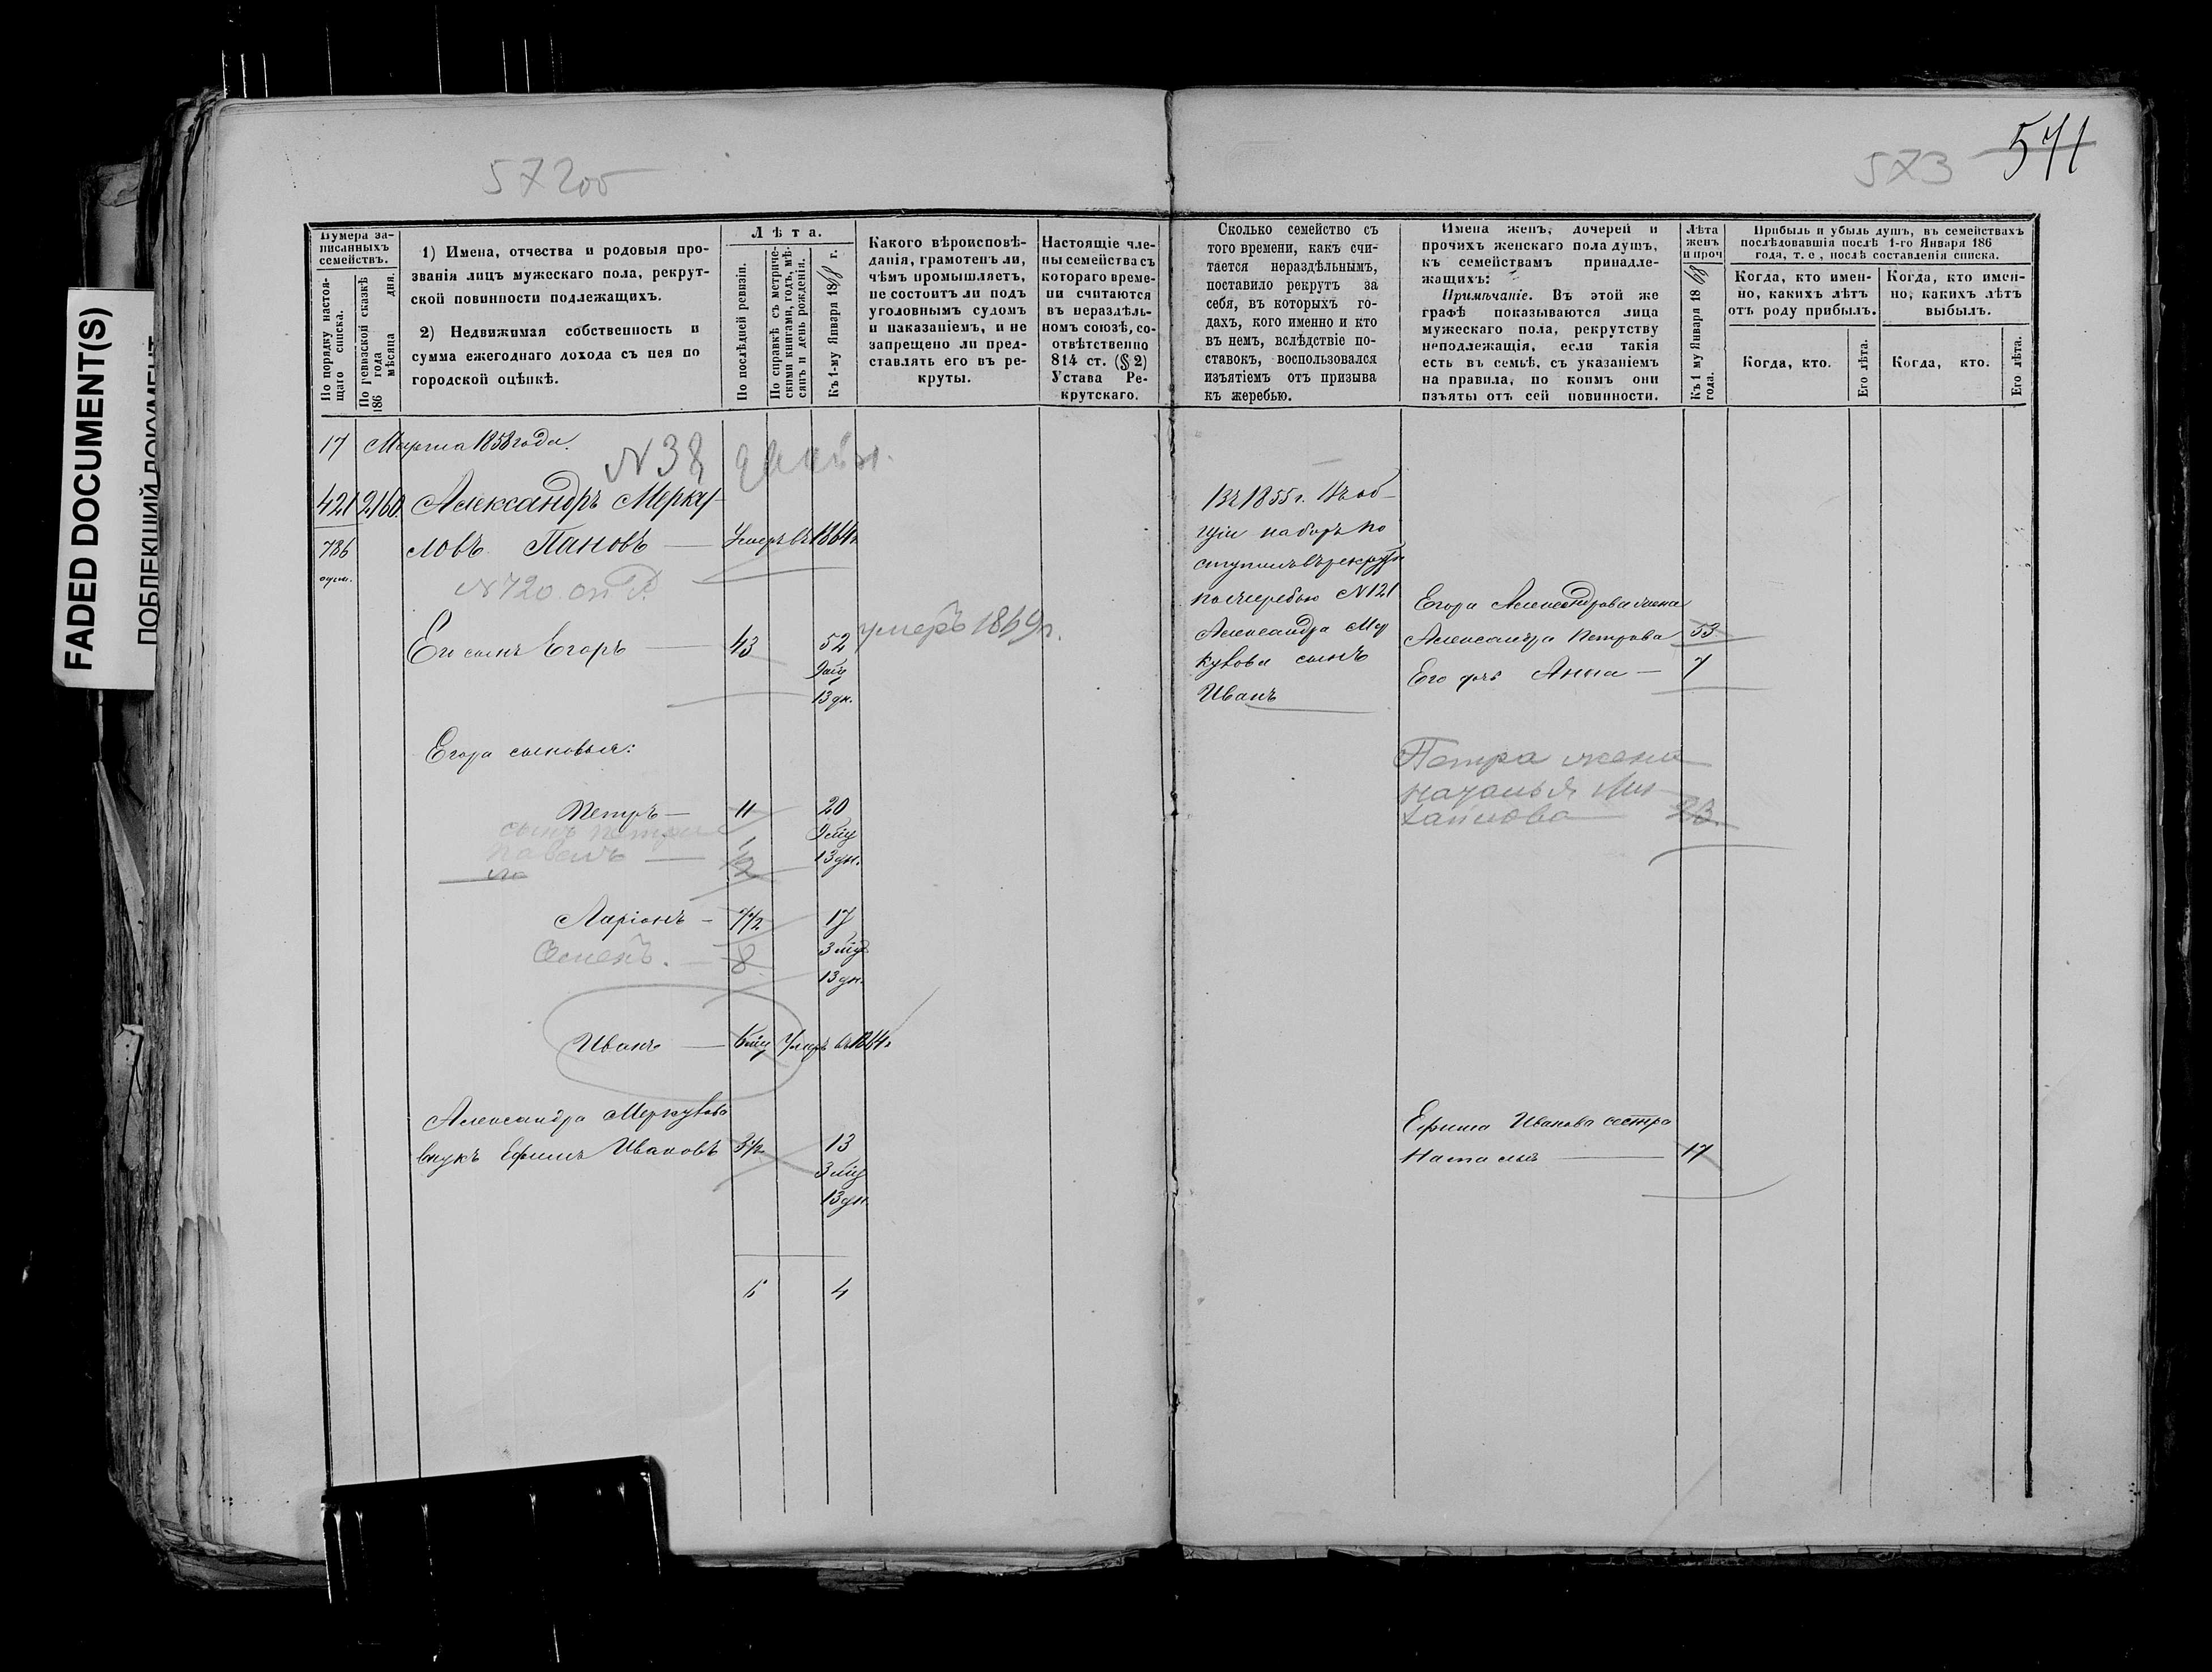 FADED DOCUMENT(S)
57200
573 571
Нумера за-
писанныхъ
семействъ.
По порядку настоя-
щаго списка.
По ревизской сказкѣ
186 года мѣсяца дня.
1) Имена, отчества и родовыя про-
званія лицъ мужескаго пола, рекрут-
ской повинности подлежащихъ.
2) Недвижимая собственность и
сумма ежегоднаго дохода съ нея по
городской оцѣнкѣ.
Лѣта.
По послѣдней ревизіи.
По справкѣ съ метриче-
скими книгами, годъ, мѣ-
сяцъ и день рожденія.
Къ 1-му Января 1868 г.
Какого вѣроисповѣ-
данія, грамотенъ ли,
чѣмъ промышляетъ,
не состоитъ ли подъ
уголовнымъ судомъ
и наказаніемъ, и не
запрещено ли пред-
ставлять его въ ре-
круты.
Настоящіе чле-
ны семейства съ
котораго време-
ни считаются
въ нераздѣль-
номъ союзѣ, со-
отвѣтственно
814 ст. (§ 2)
Устава Ре-
крутскаго.
Сколько семейство съ
того времени, какъ счи-
тается нераздѣльнымъ,
поставило рекрутъ за
себя, въ которыхъ го-
дахъ, кого именно и кто
въ немъ, вслѣдствіе по-
ставокъ, воспользовался
изъятіемъ отъ призыва
къ жеребью.
Имена женъ, дочерей и
прочихъ женскаго пола душъ,
къ семействамъ принадле-
жащихъ:
Примѣчаніе. Въ этой же
графѣ показываются лица
мужескаго пола, рекрутству
неподлежащія, если такія
есть въ семьѣ, съ указаніемъ
на правила, по коимъ они
изъяты отъ сей повинности.
Лѣта
женъ
и проч
Къ 1 му Января 1868
года.
Прибыль и убыль душъ, въ семействахъ
послѣдовавшія послѣ 1-го Января 186
года, т. е., послѣ составленія списка.
Когда, кто имен-
но, какихъ лѣтъ
отъ роду прибылъ.
Когда, кто имен-
но, какихъ лѣтъ
выбылъ.
Когда, кто.
Его лѣта.
Когда, кто.
Его лѣта.
17 Марта 1858 года.
N 38
421 2160. Александръ Мерку-
786 ловъ Пановъ — Умеръ въ 1864 г.
N 720
Его сынъ Егоръ — 43 52 умеръ 1869 г.
9 мѣц
13 дн.
Егора сыновья:
Петръ — 11 20
сынъ Петра 9 мѣц
Павелъ — 1/2 13 дн.
Ларіонъ — 7 1/2 17
Семенъ. — 8 3 мѣц
13 дн.
Иванъ — 6 мѣц Умеръ въ 1864 г
Александра Меркулова
внукъ Ефимъ Ивановъ 3 1/2 13
3 мѣц
13 дн.
6 4
Въ 1855 г. Въ об-
щій наборъ по
ступилъ въ рекруты
по жеребью N 121
Александра Мер
кулова сынъ
Иванъ
Егора Александрова жена
Александра Петрова 53
Его дочь Анна — 7
Петра жена
Наталья Ми
хайлова 23.
Ефима Иванова сестра
Наталья — 17